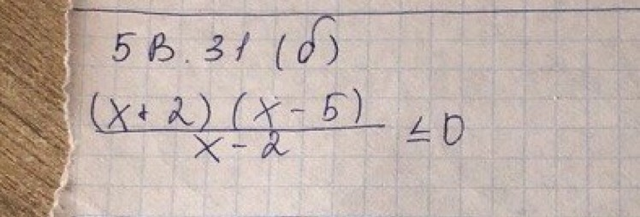 5В.31 (б)
(x+2)(x-5)
x-2 ≤0